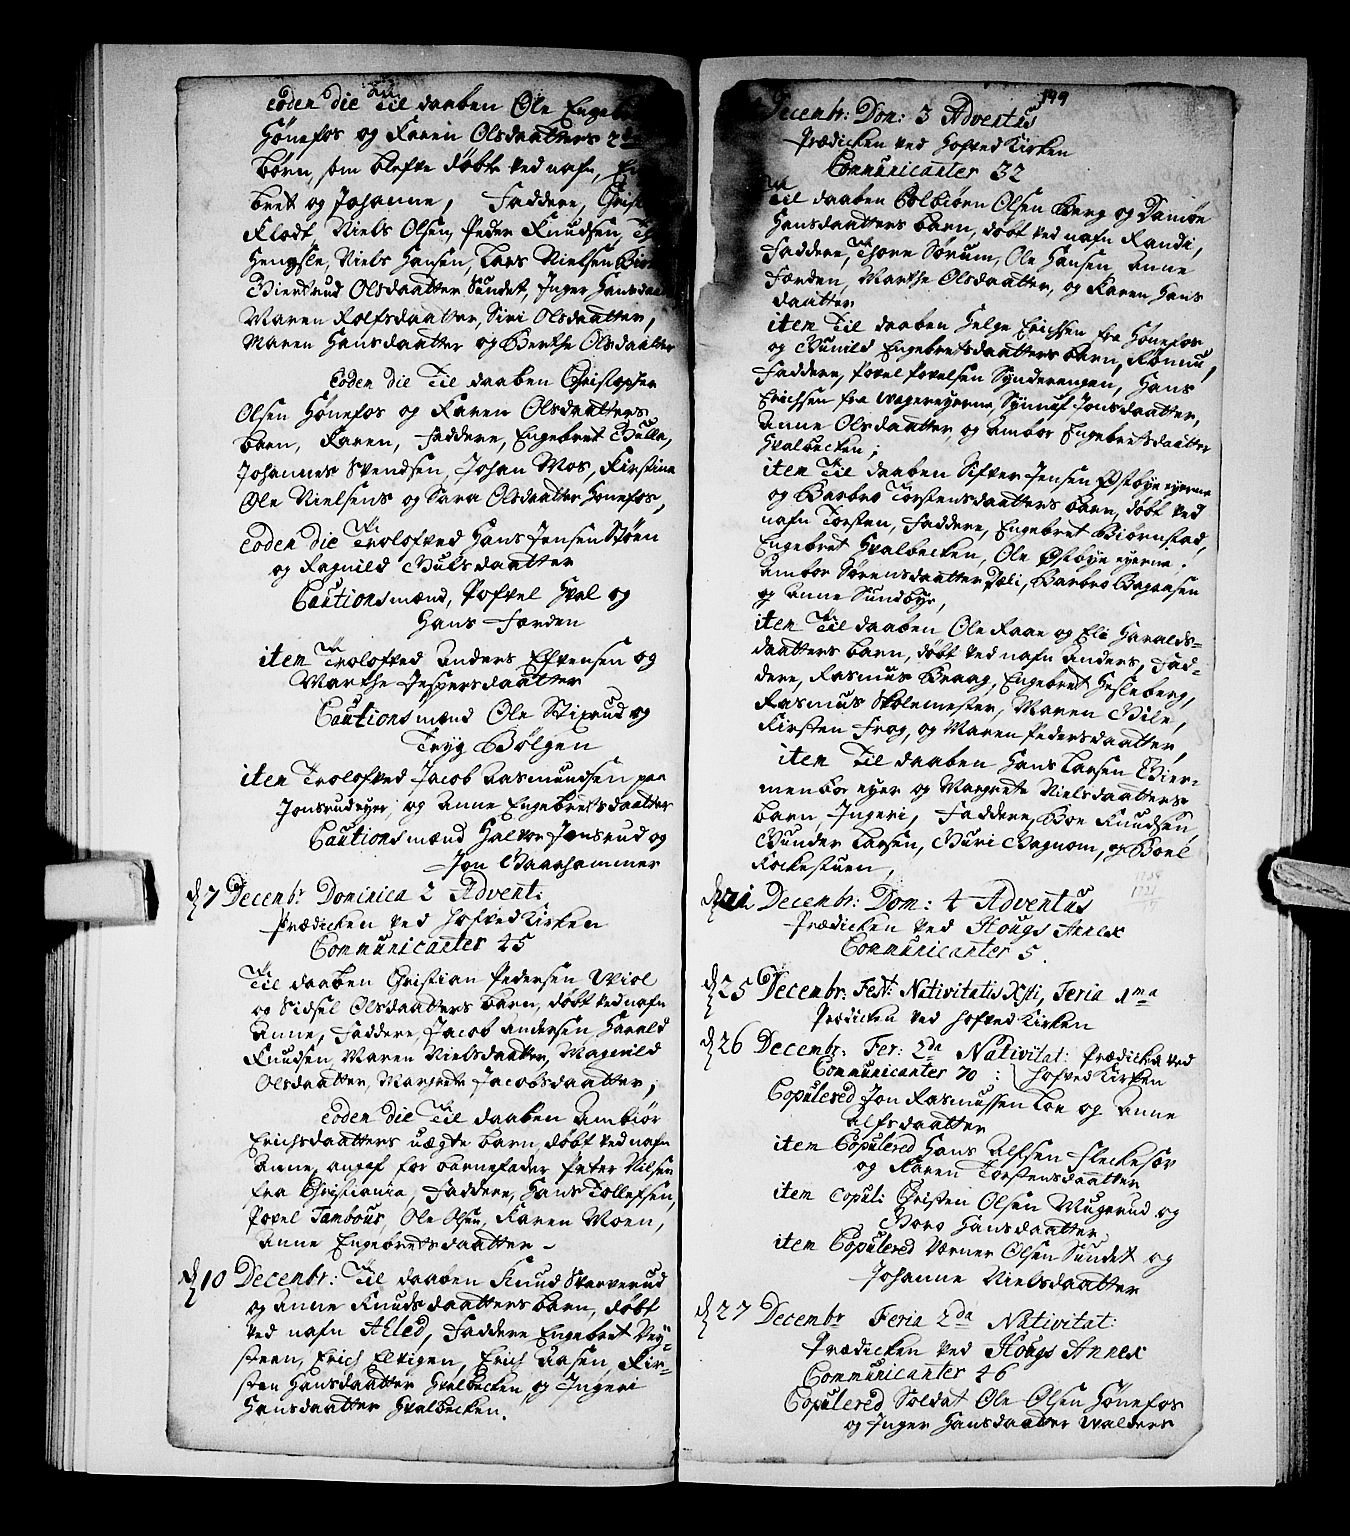 eoden die Til daaben Ole Enge
Hønefos og Karen Olsdaatters 2de
børn, som blefve døbte ved nafn,
bret og Johanne, Faddere,
Klodt, Niels Olsen, Peder Knudsen,
Hengsle, Niels Hansen, Lars Nielsen
Giertrud Olsdaatter Sundet, Inger Hansdaat
Maren Rolfsdaatter, Siri Olsdaatter,
Maren Hansdaatter og Berthe Olsdaatter
eoden die Til daaben Christopher
Olsen Hønefos og Karen Olsdaatters
barn, Karen, Faddere, Engebret Gulla,
Johannes Svendsen, Johan Mos, Kirstina
Ole Nielsens og Sara Olsdaatter Hønefos,
eoden die Trolofved Hans Jensen Støen
og Ragnild Gulsdaatter
Cautionsmænd, Pofvel Hval og
Hans Færden
item Trolofved Anders Efvensen og
Marthe Jespersdaatter
Cautionsmænd Ole Stixrud og
Tryg Bølgen
item Trolofved Jacob Rasmundsen paa
Jonsrudeyer, og Anne Engebretsdaatter
Cautionsmænd Halvor Jonsrud og
Jon Gaarhammer
D 7 Decembr Dominica 2 Advent:
Prædicken ved HofvedKirken
Communicanter 45
Til daaben Christian Pedersen Wiol
og Sidsel Olsdaatters barn, døbt ved nafn
Anne, Faddere, Jacob Andersen Harald
Knudsen, Maren Nielsdaatter, Magnild
Olsdaatter, Margrete Jacobsdaatter;
eoden die Til daaben Ambiør
Erichsdaatters uægte barn døbt ved nafn
Anne, angaf for barnefader Peter Nilsen
fra Christiania, Faddere, Hans Tollefsen,
Povel Tambour, Ole Olsen, Karen Moen,
Anne Engebretsdaatter -
D 10 Decembr: Til daaben Knud Skarverud
og Anne Knudsdaatters barn, døbt
ved nafn Ahled, Faddere Engebret Vey=
steen, Erich Elvigen, Erich Aasen, Kir=
sten Hansdaatter Hvalbecken og Ingeri
Hansdaatter Hvalbecken.
199
Decembr: Dom: 3 Adventus
Prædicken ved HofvedKirken
Communicanter 32
Til daaben Colbiørn Olsen Berg og Damøe
Hansdaatters barn, døbt ved nafn Randi,
Faddere, Thore Sørum, Ole Hansen, Anne
Færden, Marthe Olsdaatter, og Karen Hans
daatter
item Til daaben Helge Erichsen fra Hønefos
og Gunild Engebretsdaatters barn, Rønnu,
Faddere, Povel Povelsen Synderengen, Hans
Erichsen fra Wagereyerne, Synnuf Jonsdaatter,
Anne Olsdaatter, og Ambor Engebretsdaatter
Hvalbecken;
item Til daaben Sifver Jensen Østbye eyerne
og Barbro Torstensdaatters barn, døbt ved
nafn Torsten, Faddere, Engebret Biørnstad,
Engebret Hvalbecken, Ole Østbye eyerne.
Ambor Sørensdaatter Dæli, Barbro Bagensen
og Anne Sundbye,
item Til daaben Ole Raae og Eli Haralds=
daatters barn, døbt ved nafn Anders, Fad=
dere, Rasmus Braag, Engebret Hesleberg,
Rasmus Skolemester, Maren Gile,
Kirsten Frog, og Maren Pedersdaatter,
item Til daaben Hans Larsen Bier=
menboe eyer og Margrete Nielsdaatters
barn, Ingeri, Faddere, Boe Knudsen,
Gunder Larsen, Guri Gagnom, og Boel
Rockestuen,
D 21 Decembr: Dom: 4 Adventus
Prædicken ved Hougs Annex
Communicanter 5.
D 25 Decembr: Fest: Nativitatis Xsti, Feria 1ma
Prædicken ved HofvedKirken
D 26 Decembr. Fer: 2da Nativitat: Prædicken ved
Communicanter 70 : HofvedKirken
Copulered Jon Rasmussen Loe og Anne
Alfsdaatter
item Copulered Hans Alfsen Fleckesør
og Karen Torstensdaatter
item Copul: Christen Olsen Mugerud og
Goro Hansdaatter
item Copulered Værner Olsen Sundet og
Johanne Nielsdaatter
D 27 Decembr Feria 2da Nativitat:
Prædicken ved Hougs Annex
Communicanter 46
Copulered Soldat Ole Olsen Hønefos
og Inger Hansdaatter Walders